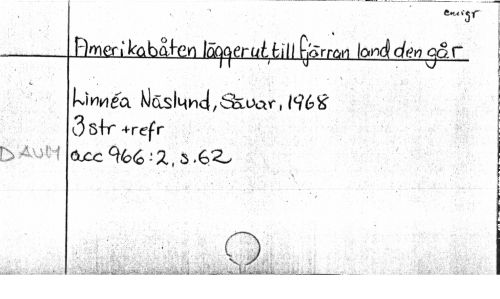 emigr
Amerikabåten lägger ut, till fjärran land den går
Linnéa Näslund, Sävar, 1968
3 str + refr
DAUM acc 966:2, s.62